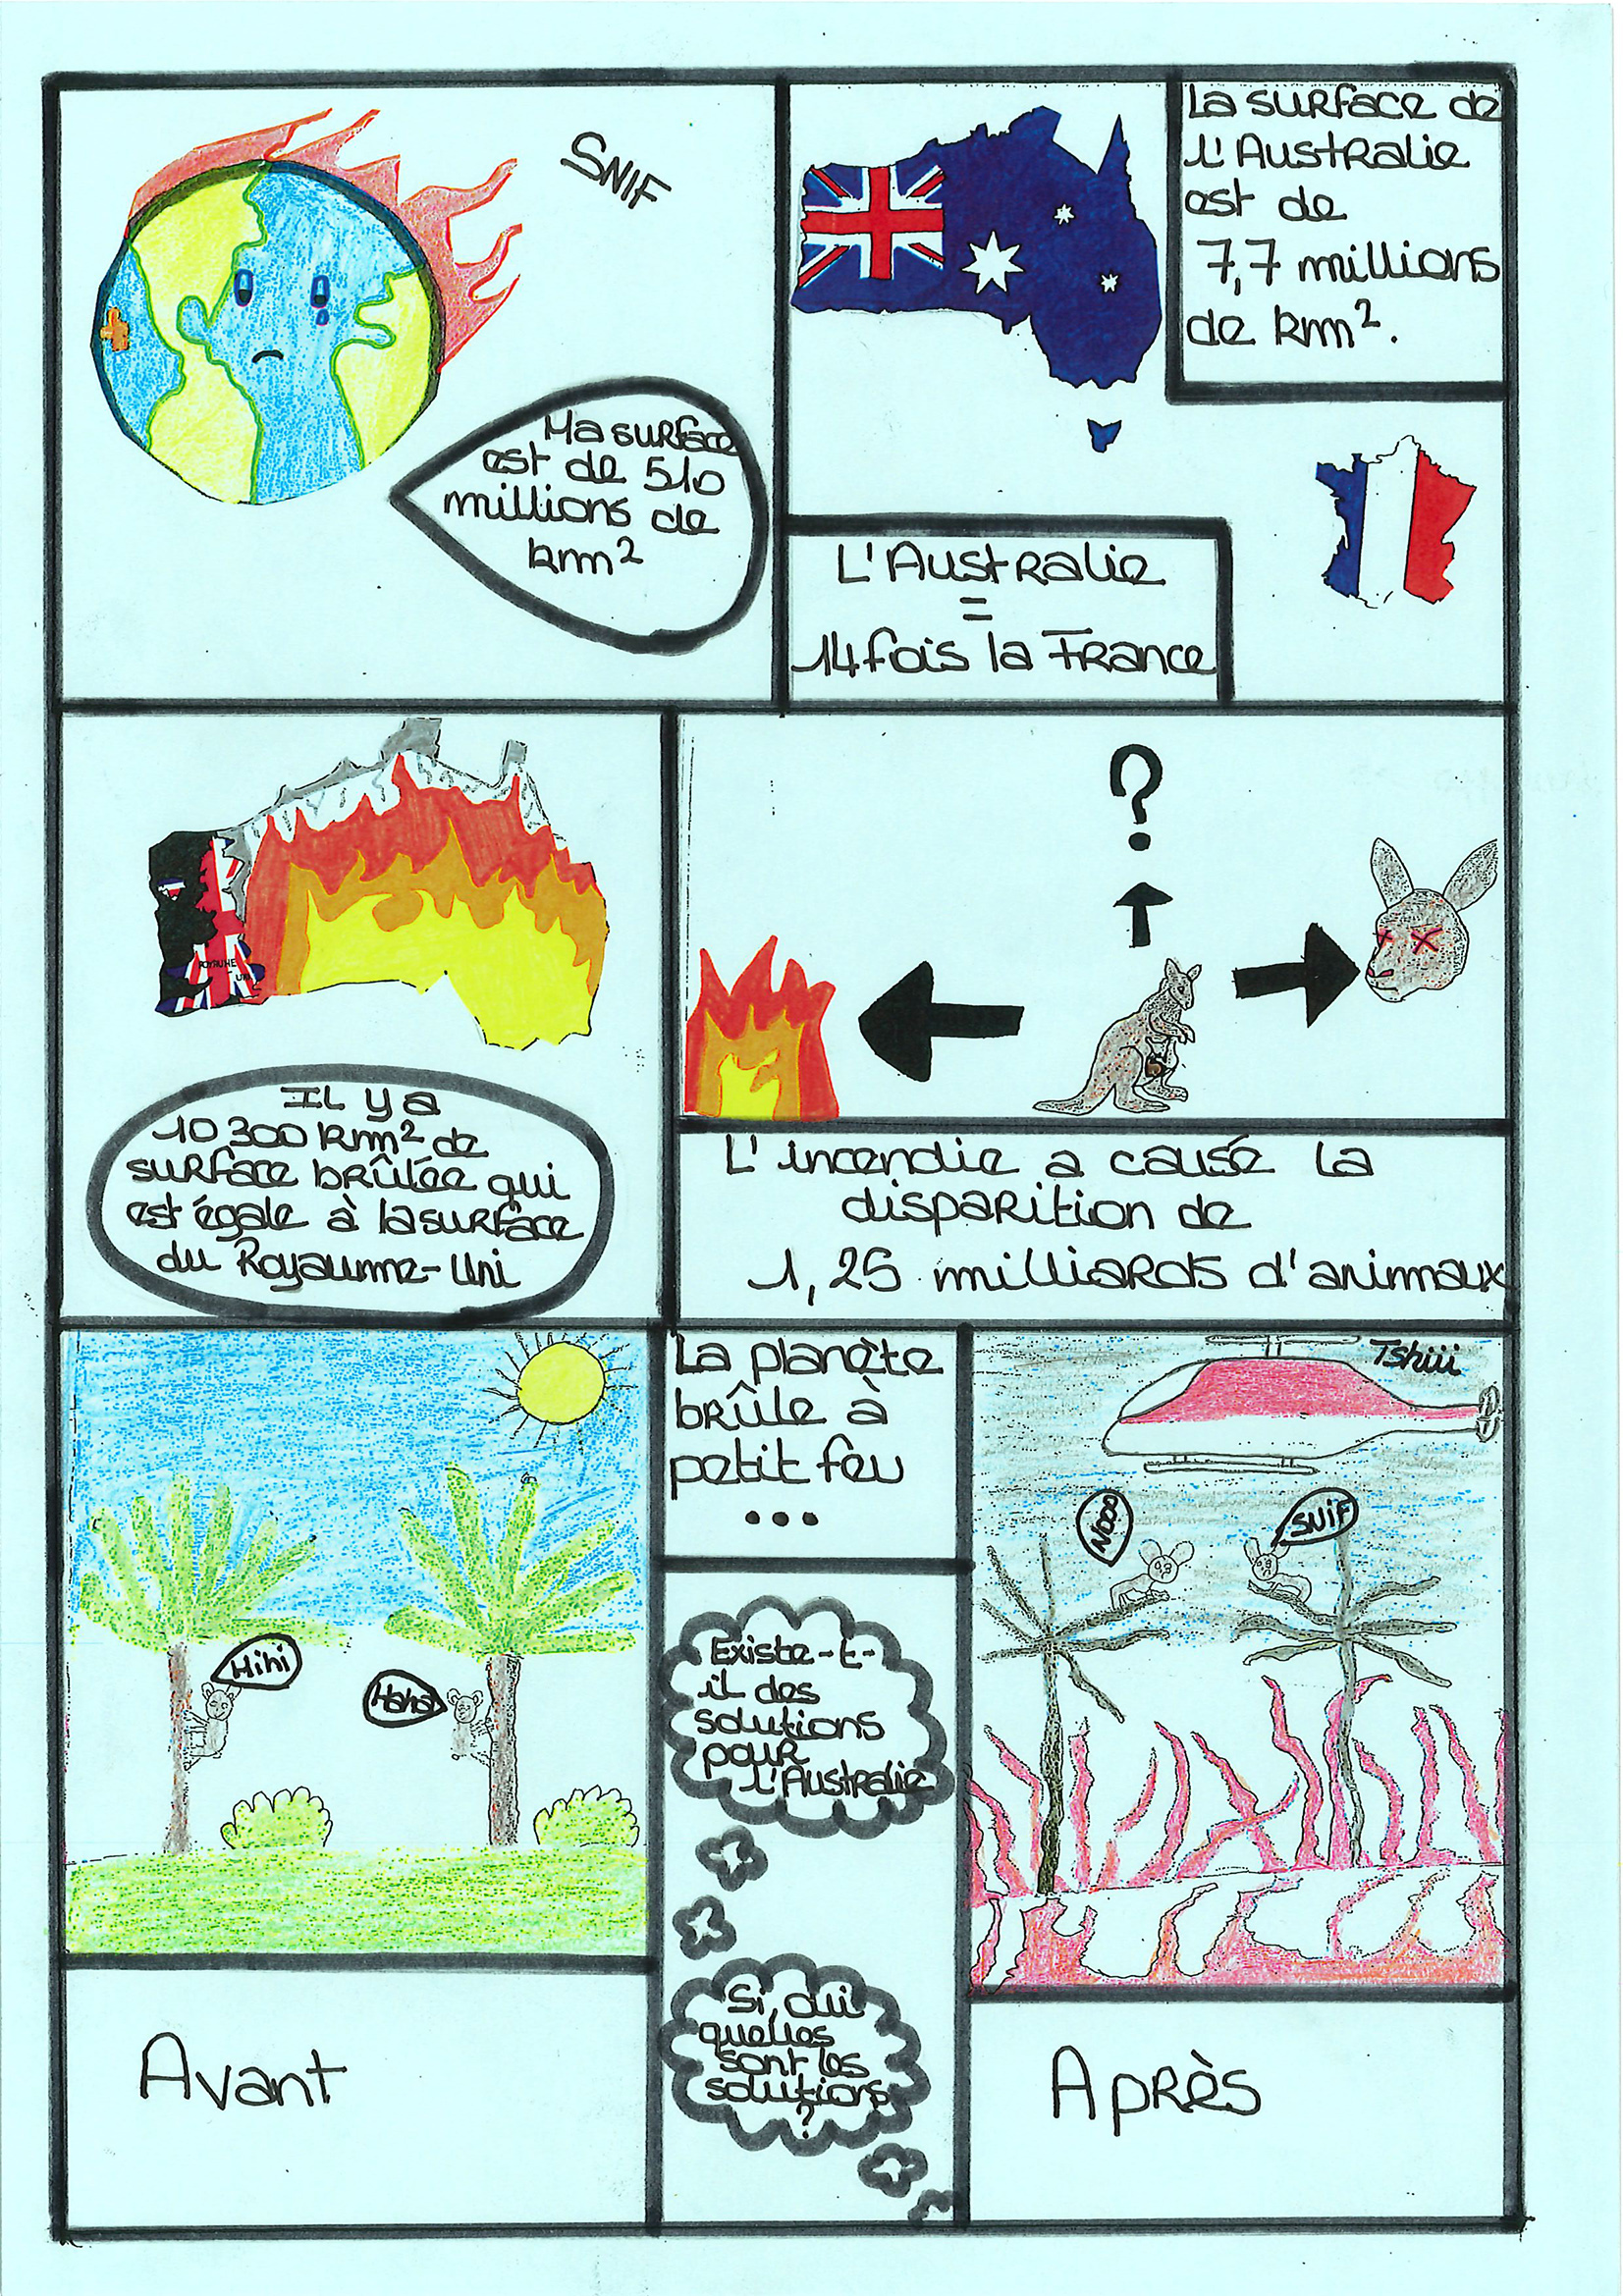 SNIF
Ma surface
est de 510
millions de
km²
La surface de
L'Australie
est de
7,7 millions
de km².
L'Australie
=
14 fois la France
ROYAUME
-UNI
Il y a
10 300 km² de
surface brûlée qui
est égale à la surface
du Royaume-Uni
?
L'incendie a causé la
disparition de
1,25 milliards d'animaux
Hihi
Haha
Avant
La planète
brûle à
petit feu
...
Existe-t-
il des
solutions
pour
l'Australie
Si, oui
quelles
sont les
solutions
?
Tshiii
Nooo
SNIF
Après